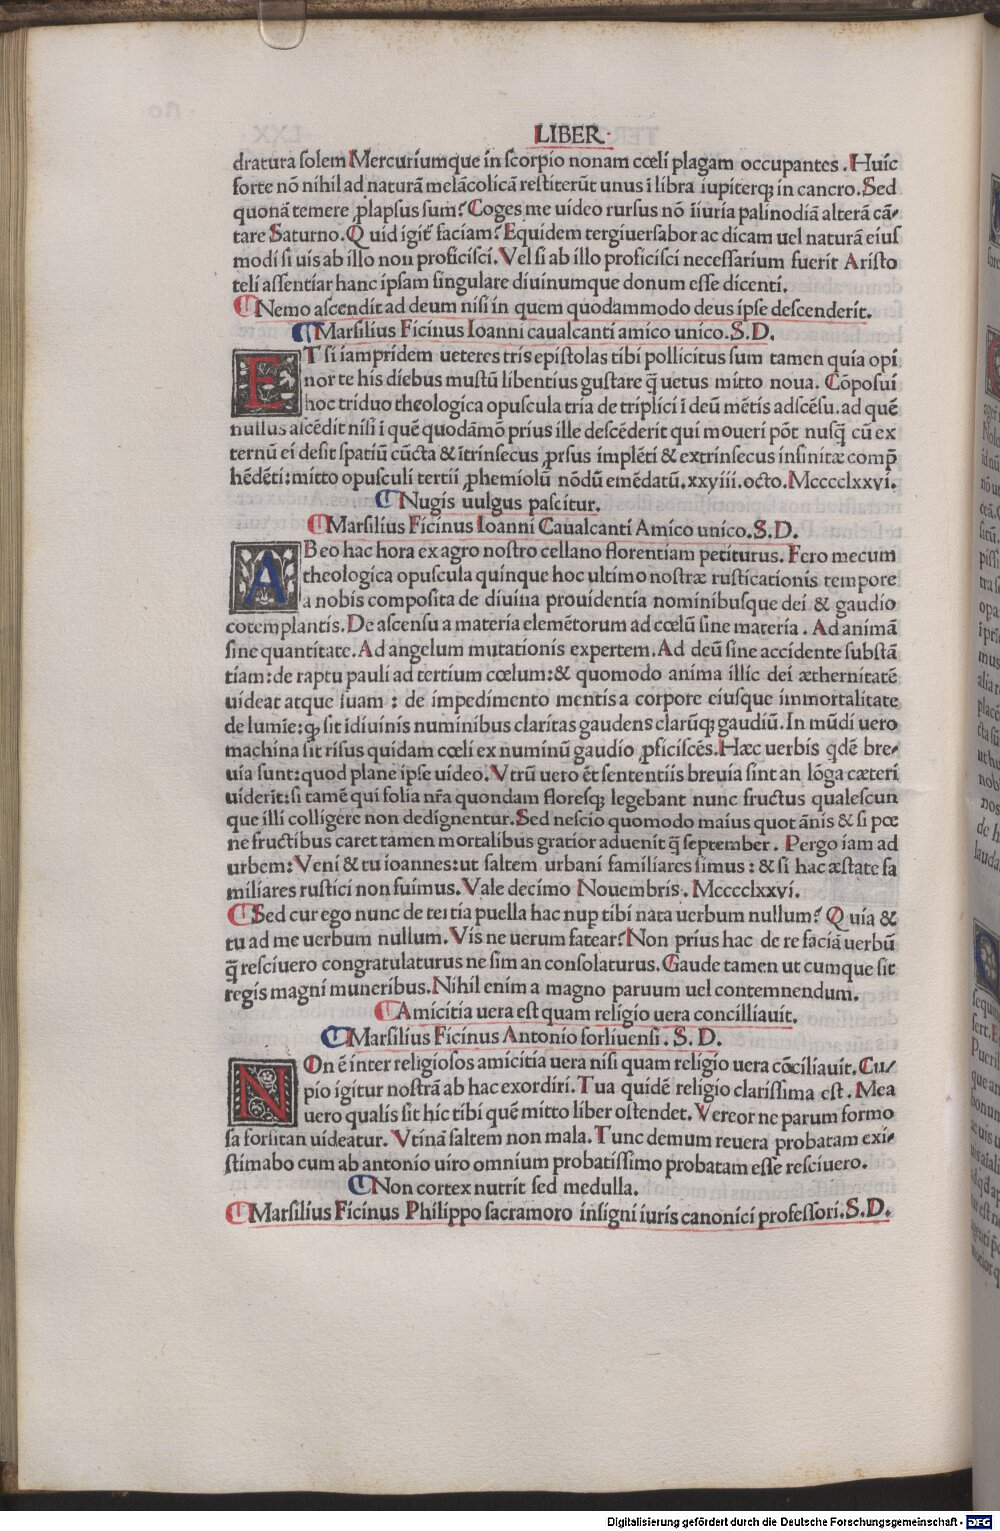 LIBER·
dratura ſolem Mercuriumque in ſcorpio nonam cœli plagam occupantes. Huic
forte nõ nihil ad naturã melãcolicã reſtiterũt unus ĩ libra iupiterq; in cancro. Sed
quonã temere ꝓlapſus ſum? Coges me uideo rurſus nõ ĩiuria palinodiã alterã cã⸗
tare Saturno. Quid igit̃ faciam? Equidem tergiuerſabor ac dicam uel naturã eiuſ
modi ſi uis ab illo non proficiſci. Vel ſi ab illo proficiſci neceſſarium fuerit Ariſto
teli aſſentiar hanc ipſam ſingulare diuinumque donum eſſe dicenti.
¶Nemo aſcendit ad deum niſi in quem quodammodo deus ipſe deſcenderit.
¶Marſilius Ficinus Ioanni caualcanti amico unico. S. D.
ET ſi iampridem ueteres tris epiſtolas tibi pollicitus ſum tamen quia opi
nor te his diebus muſtũ libentius guſtare q̃ uetus mitto noua. Cõpoſui
hoc triduo theologica opuſcula tria de triplici ĩ deũ mẽtis adſcẽſu. ad quẽ
nullus aſcẽdit niſi ĩ quẽ quodãmõ prius ille deſcẽderit qui moueri põt nuſq̃ cũ ex
ternũ ei deſit ſpatiũ cũcta & ĩtrinſecus ꝓrſus implẽti & extrinſecus infinitæ comp̃
hẽdẽti: mitto opuſculi tertii ꝓhemiolũ nõdũ emẽdatũ. xxyiii. octo. Mcccclxxvi.
¶Nugis uulgus paſcitur.
¶Marſilius Ficinus Ioanni Caualcanti Amico unico. S. D.
ABeo hac hora ex agro noſtro cellano florentiam petiturus. Fero mecum
theologica opuſcula quinque hoc ultimo noſtræ ruſticationis tempore
a nobis compoſita de diuina prouidentia nominibuſque dei & gaudio
cotemplantis. De aſcenſu a materia elemẽtorum ad cœlũ ſine materia. Ad animã
ſine quantitate. Ad angelum mutationis expertem. Ad deũ ſine accidente ſubſtã
tiam: de raptu pauli ad tertium cœlum: & quomodo anima illic dei æthernitatẽ
uideat atque ſuam: de impedimento mentis a corpore eiuſque immortalitate
de lumĩe: q; ſit ĩdiuinis numinibus claritas gaudens clarũq; gaudiũ. In mũdi uero
machina ſit riſus quidam cœli ex numinũ gaudio ꝓficiſcẽs. Hæc uerbis qdẽ bre⸗
uia ſunt: quod plane ipſe uideo. Vtrũ uero ẽt ſententiis breuia ſint an lõga cæteri
uiderĩt: ſi tamẽ qui folia nr̃a quondam floreſq; legebant nunc fructus qualeſcun
que illi colligere non dedignentur. Sed neſcio quomodo maius quot ãnis & ſi pœ
ne fructibus caret tamen mortalibus gratior aduenit q̃ ſeptember. Pergo iam ad
urbem: Veni & tu ioannes: ut ſaltem urbani familiares ſimus: & ſi hac æſtate fa
miliares ruſtici non fuimus. Vale decimo Nouembris. Mcccclxxvi.
¶Sed cur ego nunc de tertia puella hac nup tibi nata uerbum nullum? Quia &
tu ad me uerbum nullum. Vis ne uerum fatear? Non prius hac de re faciã uerbũ
q̃ reſciuero congratulaturus ne ſim an conſolaturus. Gaude tamen ut cumque ſit
regis magni muneribus. Nihil enim a magno paruum uel contemnendum.
¶Amicitia uera eſt quam religio uera concilliauit.
¶Marſilius Ficinus Antonio forliuenſi. S. D.
NOn ẽ inter religioſos amicitia uera niſi quam religio uera cõciliauit. Cu⸗
pio igitur noſtrã ab hac exordiri. Tua quidẽ religio clariſſima eſt. Mea
uero qualis ſit hic tibi quẽ mitto liber oſtendet. Vereor ne parum formo
ſa forſitan uideatur. Vtinã ſaltem non mala. Tunc demum reuera probatam exi⸗
ſtimabo cum ab antonio uiro omnium probatiſſimo probatam eſſe reſciuero.
¶Non cortex nutrit ſed medulla.
¶Marſilius Ficinus Philippo ſacramoro inſigni iuris canonici profeſſori. S. D.
Digitalisierung gefördert durch die Deutsche Forschungsgemeinschaft - DFG